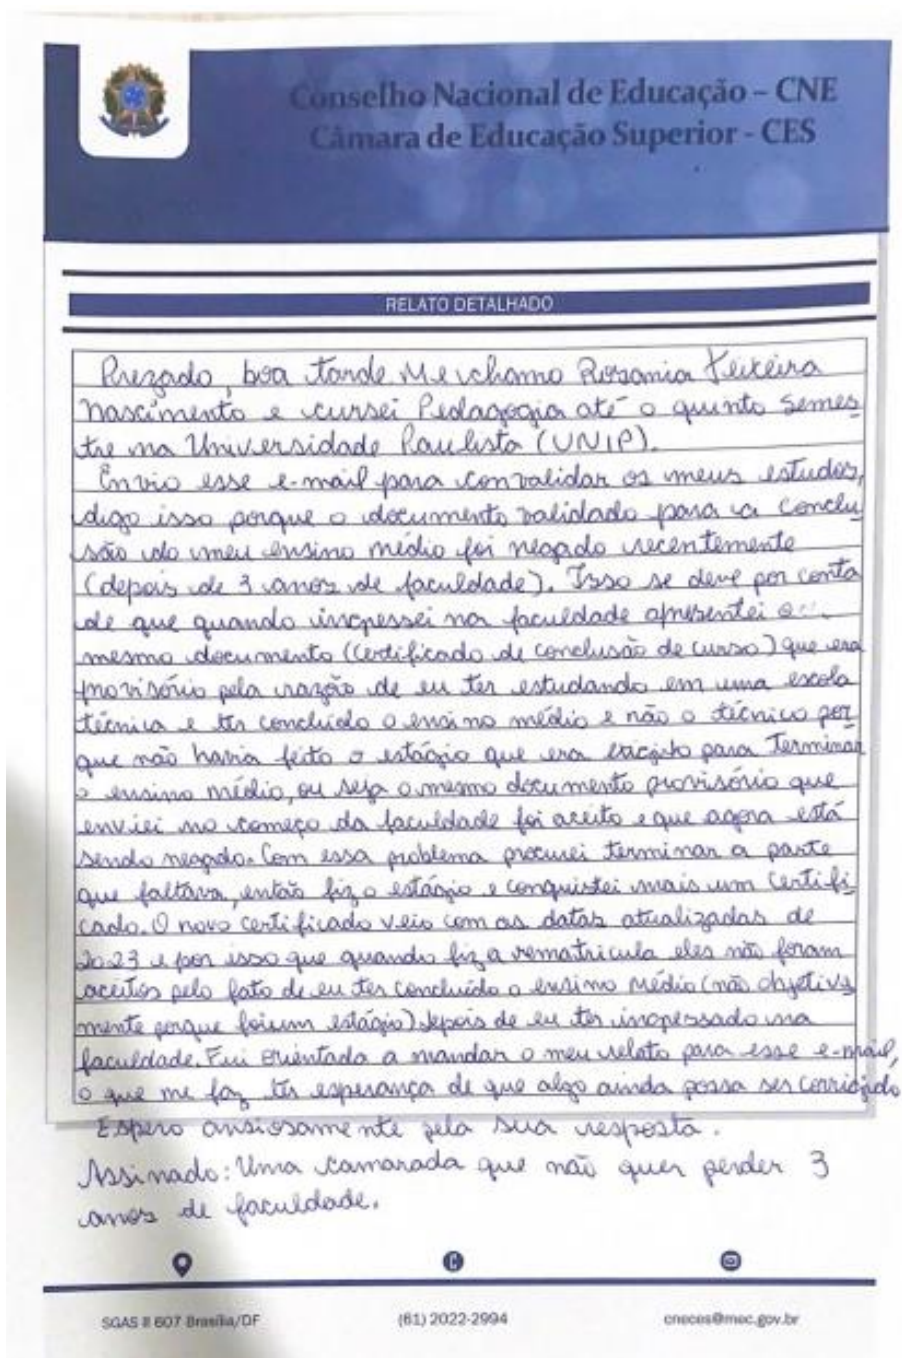 Conselho Nacional de Educação – CNE
Câmara de Educação Superior - CES
RELATO DETALHADO
Prezado, boa tarde Me chamo Rosania Teixeira
nascimento e cursei Pedagogia até o quinto semes-
tre na Universidade Paulista (UNIP).
Envio esse e-mail para convalidar os meus estudos,
digo isso porque o documento validado para a conclu
são do meu ensino médio foi negado recentemente
(depois de 3 anos de faculdade). Isso se deve por conta
de que quando ingressei na faculdade apresentei o
mesmo documento (certificado de conclusão de curso) que era
provisório pela razão de eu ter estudando em uma escola
técnica e ter concluído o ensino médio e não o técnico por
que não havia feito o estágio que era exigido para Terminar
o ensino médio, ou seja o mesmo documento provisório que
enviei no começo da faculdade foi aceito e que agora está
sendo negado. Com essa problema procurei terminar a parte
que faltava, então fiz o estágio e conquistei mais um certifi-
cado. O novo certificado veio com as datas atualizadas de
2023 e por isso que quando fiz a rematrícula eles não foram
aceitos pelo fato de eu ter concluído o ensino médio (não objetiva
mente porque foi um estágio) depois de eu ter ingressado na
faculdade. Fui orientada a mandar o meu relato para esse e-mail,
o que me faz ter esperança de que algo ainda possa ser corrigido
Espero ansiosamente pela sua resposta.
Assinado: Uma camarada que não quer perder 3
anos de faculdade.
SGAS II 607 Brasília/DF (61) 2022-2994 cneces@mec.gov.br